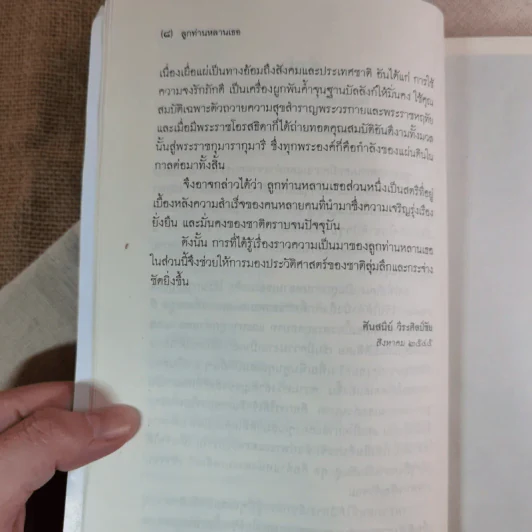 (๘) ลูกท่านหลานเธอ
เนื่องเผื่อแผ่เป็นทางอ้อมถึงสังคมและประเทศชาติ อันได้แก่ การใช้
ความจงรักภักดี เป็นเครื่องผูกพันค้ำจุนฐานบัลลังก์ให้มั่นคง ใช้คุณ
สมบัติเฉพาะตัวถวายความสุขสำราญพระวรกายและพระราชหฤทัย
และเมื่อมีพระราชโอรสธิดาก็ได้ถ่ายทอดคุณสมบัติอันดีงามทั้งมวล
นั้นสู่พระราชกุมารากุมารี ซึ่งทุกพระองค์ก็คือกำลังของแผ่นดินใน
กาลต่อมาทั้งสิ้น
จึงอาจกล่าวได้ว่า ลูกท่านหลานเธอส่วนหนึ่งเป็นสตรีที่อยู่
เบื้องหลังความสำเร็จของคนหลายคนที่นำมาซึ่งความเจริญรุ่งเรือง
ยั่งยืน และมั่นคงของชาติตราบจนปัจจุบัน
ดังนั้น การที่ได้รู้เรื่องราวความเป็นมาของลูกท่านหลานเธอ
ในส่วนนี้จึงช่วยให้การมองประวัติศาสตร์ของชาติลุ่มลึกและกระจ่าง
ชัดยิ่งขึ้น
ศันสนีย์ วีระศิลป์ชัย
สิงหาคม ๒๕๔๕